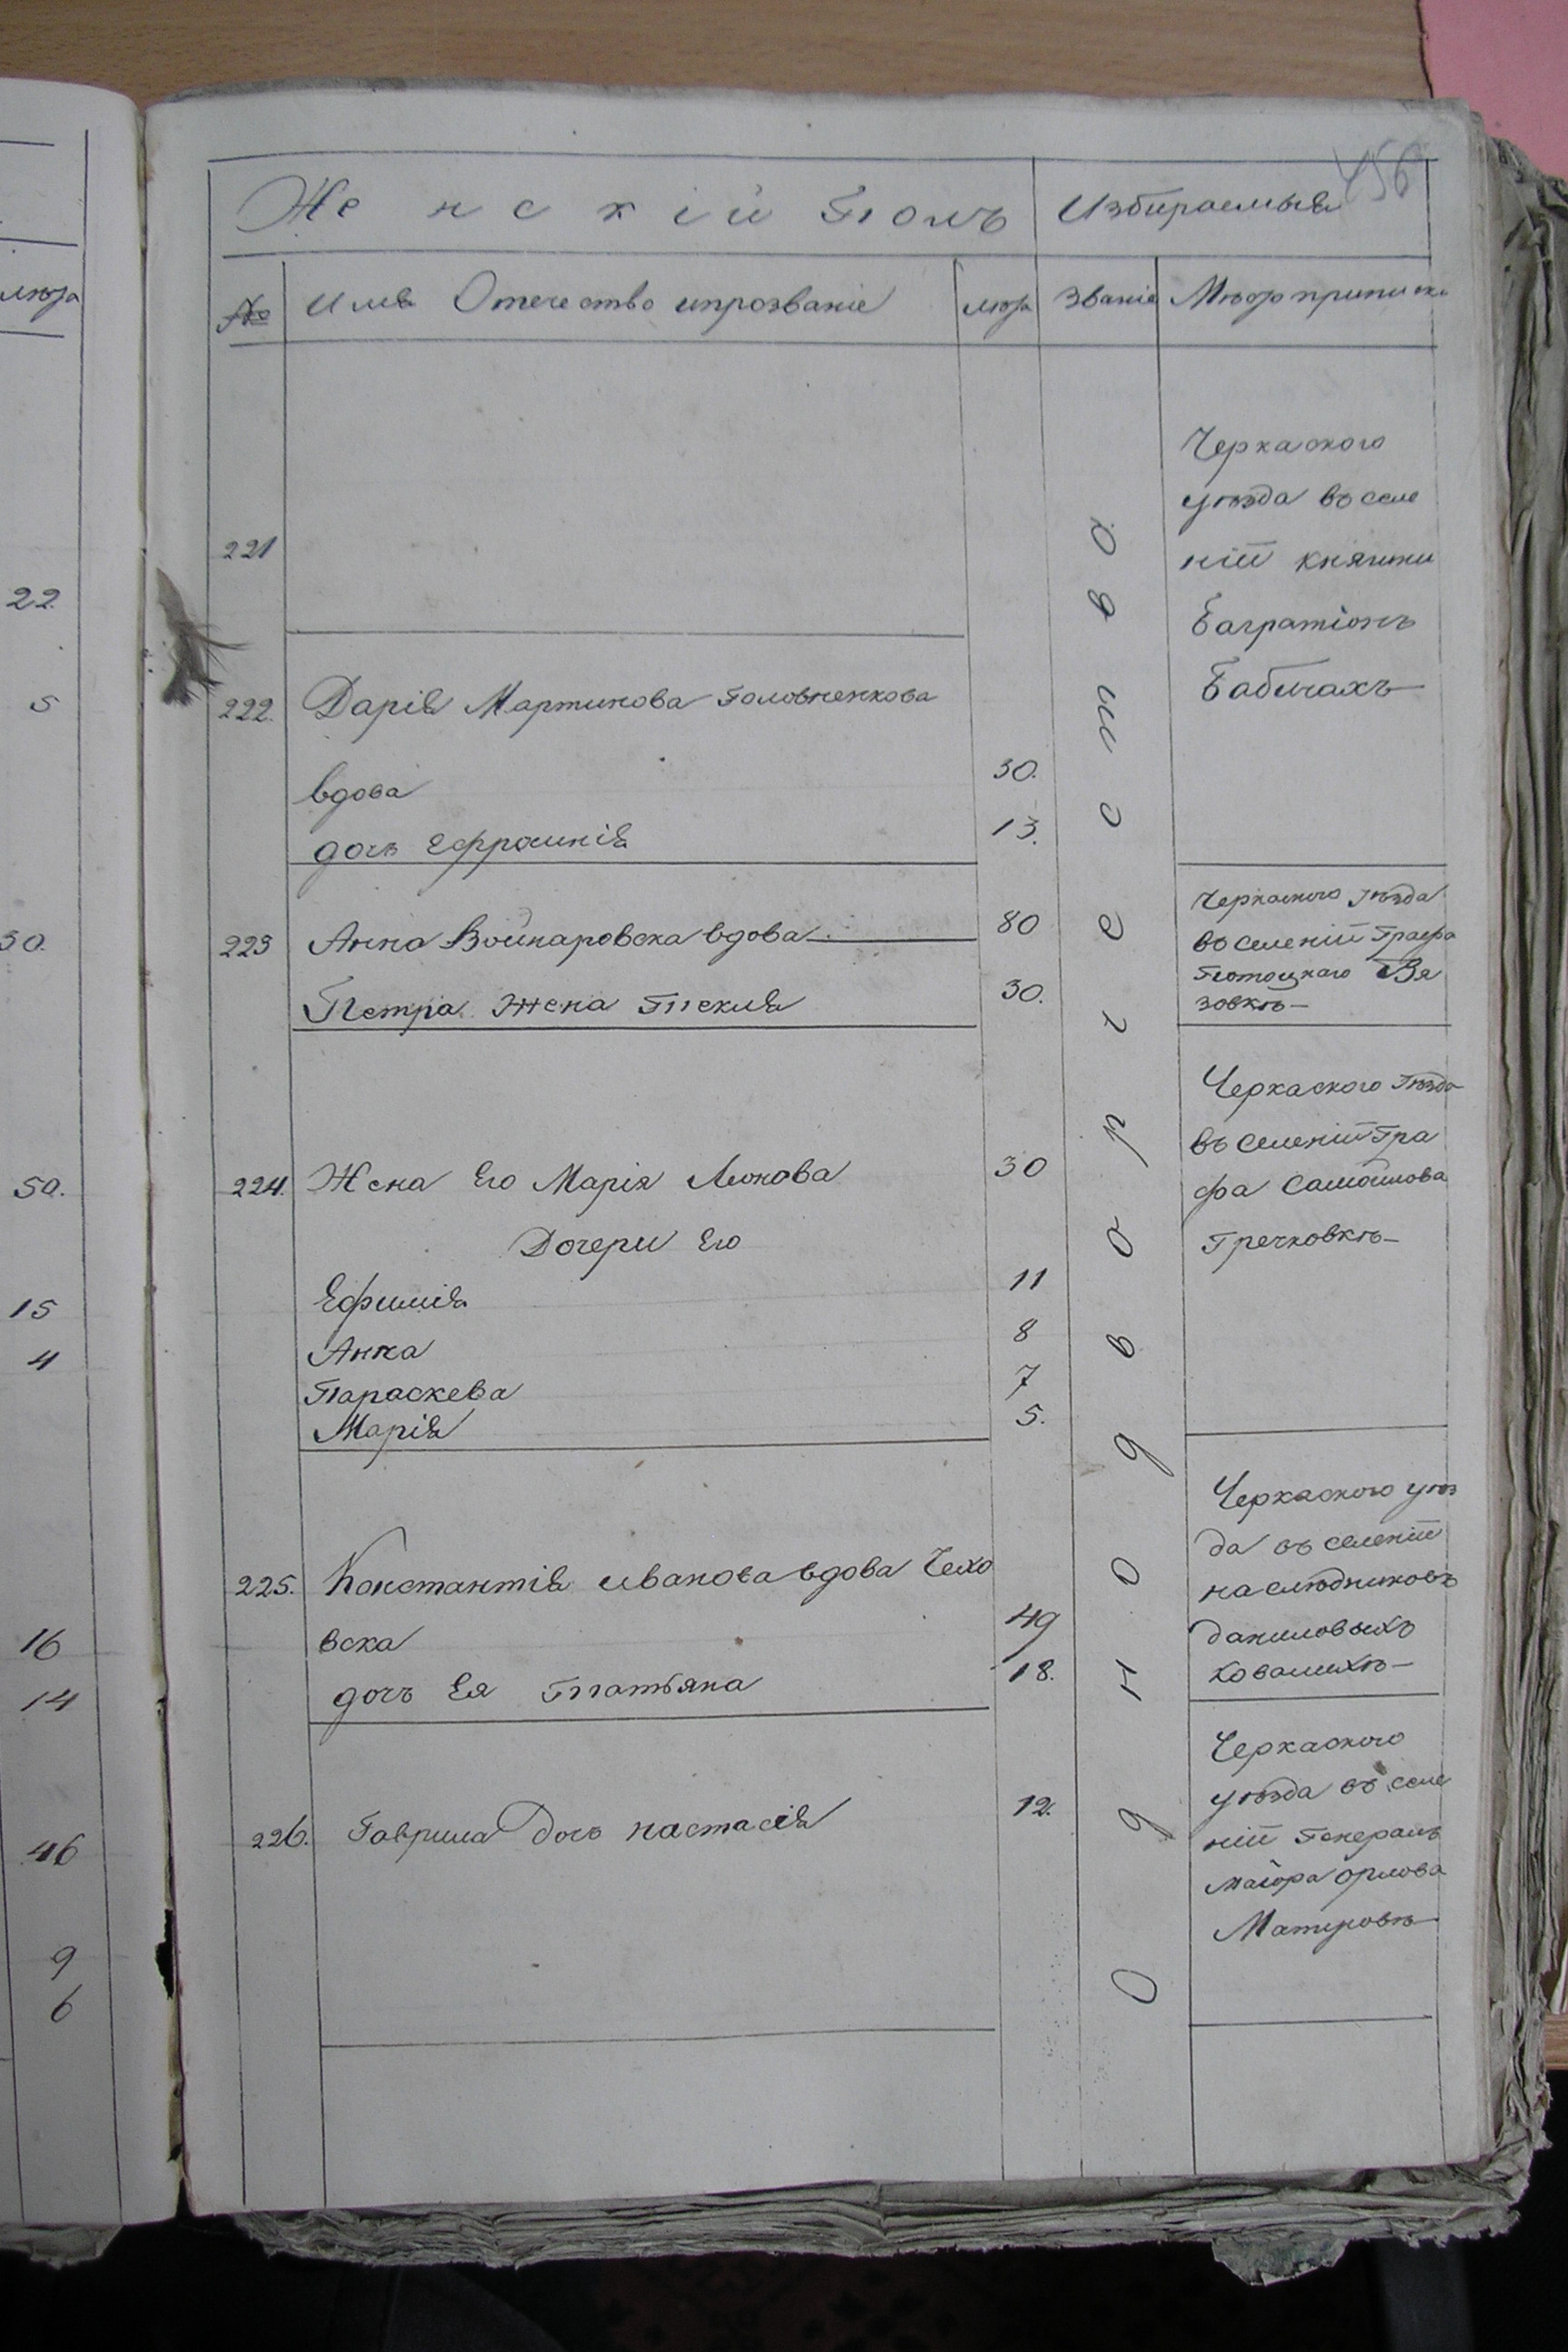 456
Женскій Полъ
Избираемыя
№
Имя Отечество ипрозваніе
лѣта
Званіе
Мѣсто приписки
лѣта
22.
5
30.
50.
15
4
16
14
46
9
6
221
Черкаского
уѣзда въ селе
ніи княгини
Багратіонъ
Бабичахъ
222. Дарія Мартинова Головченкова
вдова 30.
дочь Ефросинія 13.
223 Анна Войнаровска вдова 80
Петра жена Текля 30.
Черкаского уѣзда
въ селеніи Графа
Потоцкаго Вя
зовкѣ
224. Жена Его Марія Леонова 30
Дочери Его
Ефимія 11
Анна 8
Параскева 7
Марія 5.
Черкаского уѣзда
въ селеніи Гра
фа Самойлова
Гречковкѣ
225. Константія Иванова вдова Чехо
вска 49
дочь Ея Татьяна 18.
Черкаского уѣз
да въ селеніи
наслѣдниковъ
даниловыхъ
Ковалихѣ
226. Гаврила Дочь настасія 12.
Черкаского
уѣзда въ селе
ніи Генералъ
маіора орлова
Матусовѣ
Однодворческово